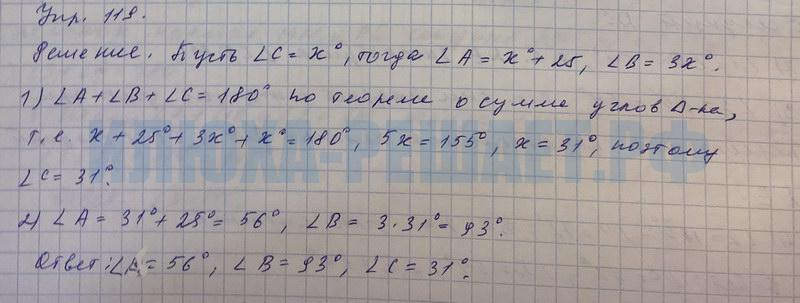 Упр. 119.
Решение. Пусть ∠C = x°, тогда ∠A = x° + 25, ∠B = 3x°.
1) ∠A + ∠B + ∠C = 180° по теореме о сумме углов Δ-ка,
т.е. x + 25° + 3x° + x° = 180°, 5x = 155°, x = 31°, поэтому
ИЛЮХА-РЕШАЕТ.РФ
∠C = 31°.
2) ∠A = 31° + 25° = 56°, ∠B = 3·31° = 93°.
Ответ: ∠A = 56°, ∠B = 93°, ∠C = 31°.